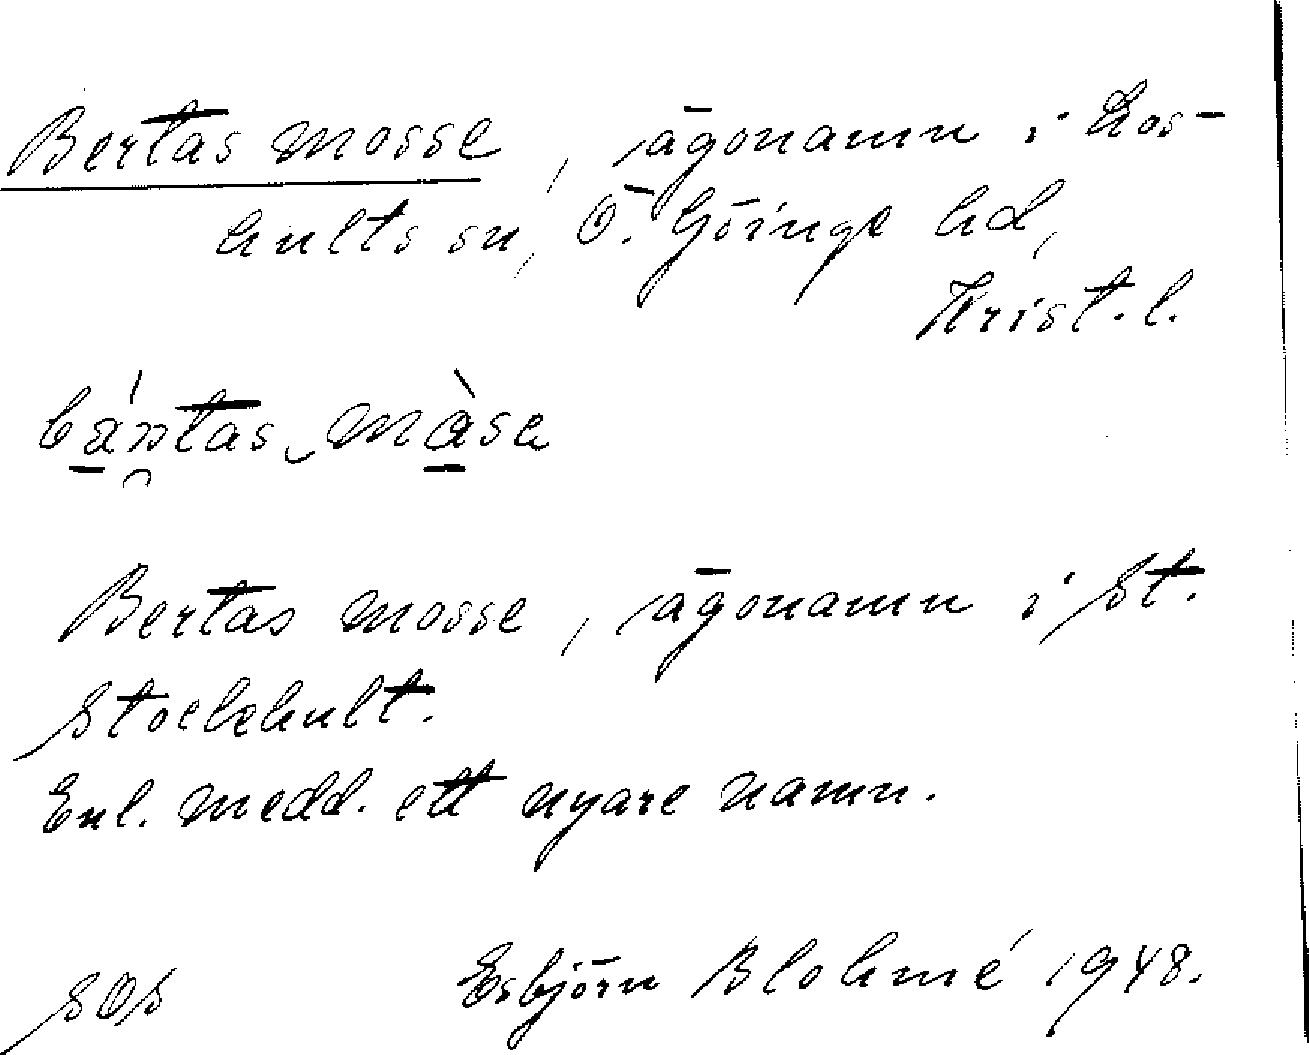 Bertas mosse, ägonamn i Los-
hults sn, Ö. Göinge hd,
Krist. l.
Bertas mosse, ägonamn i St.
Stockhult.
Enl. medd. ett nyare namn.
SOS Esbjörn Blohmé 1948.